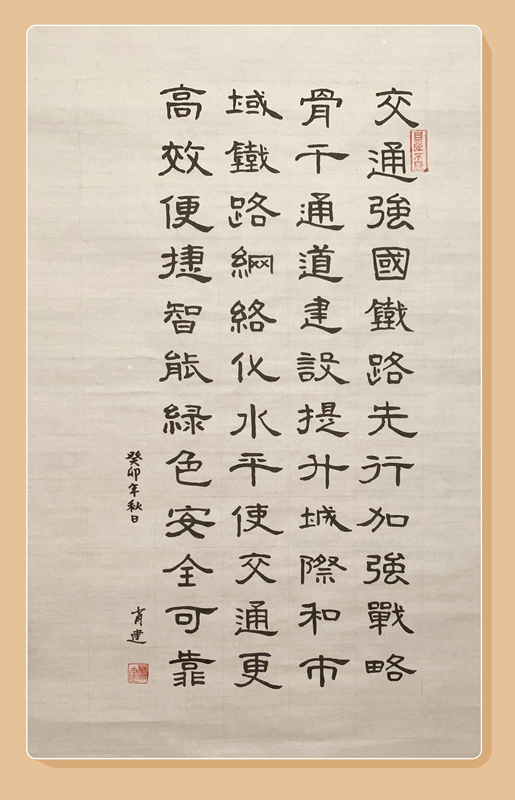 交通強國鐵路先行加強戰略
骨干通道建設提升城際和市
域鐵路網絡化水平使交通更
高效便捷智能緑色安全可靠
癸卯年秋日
肖建